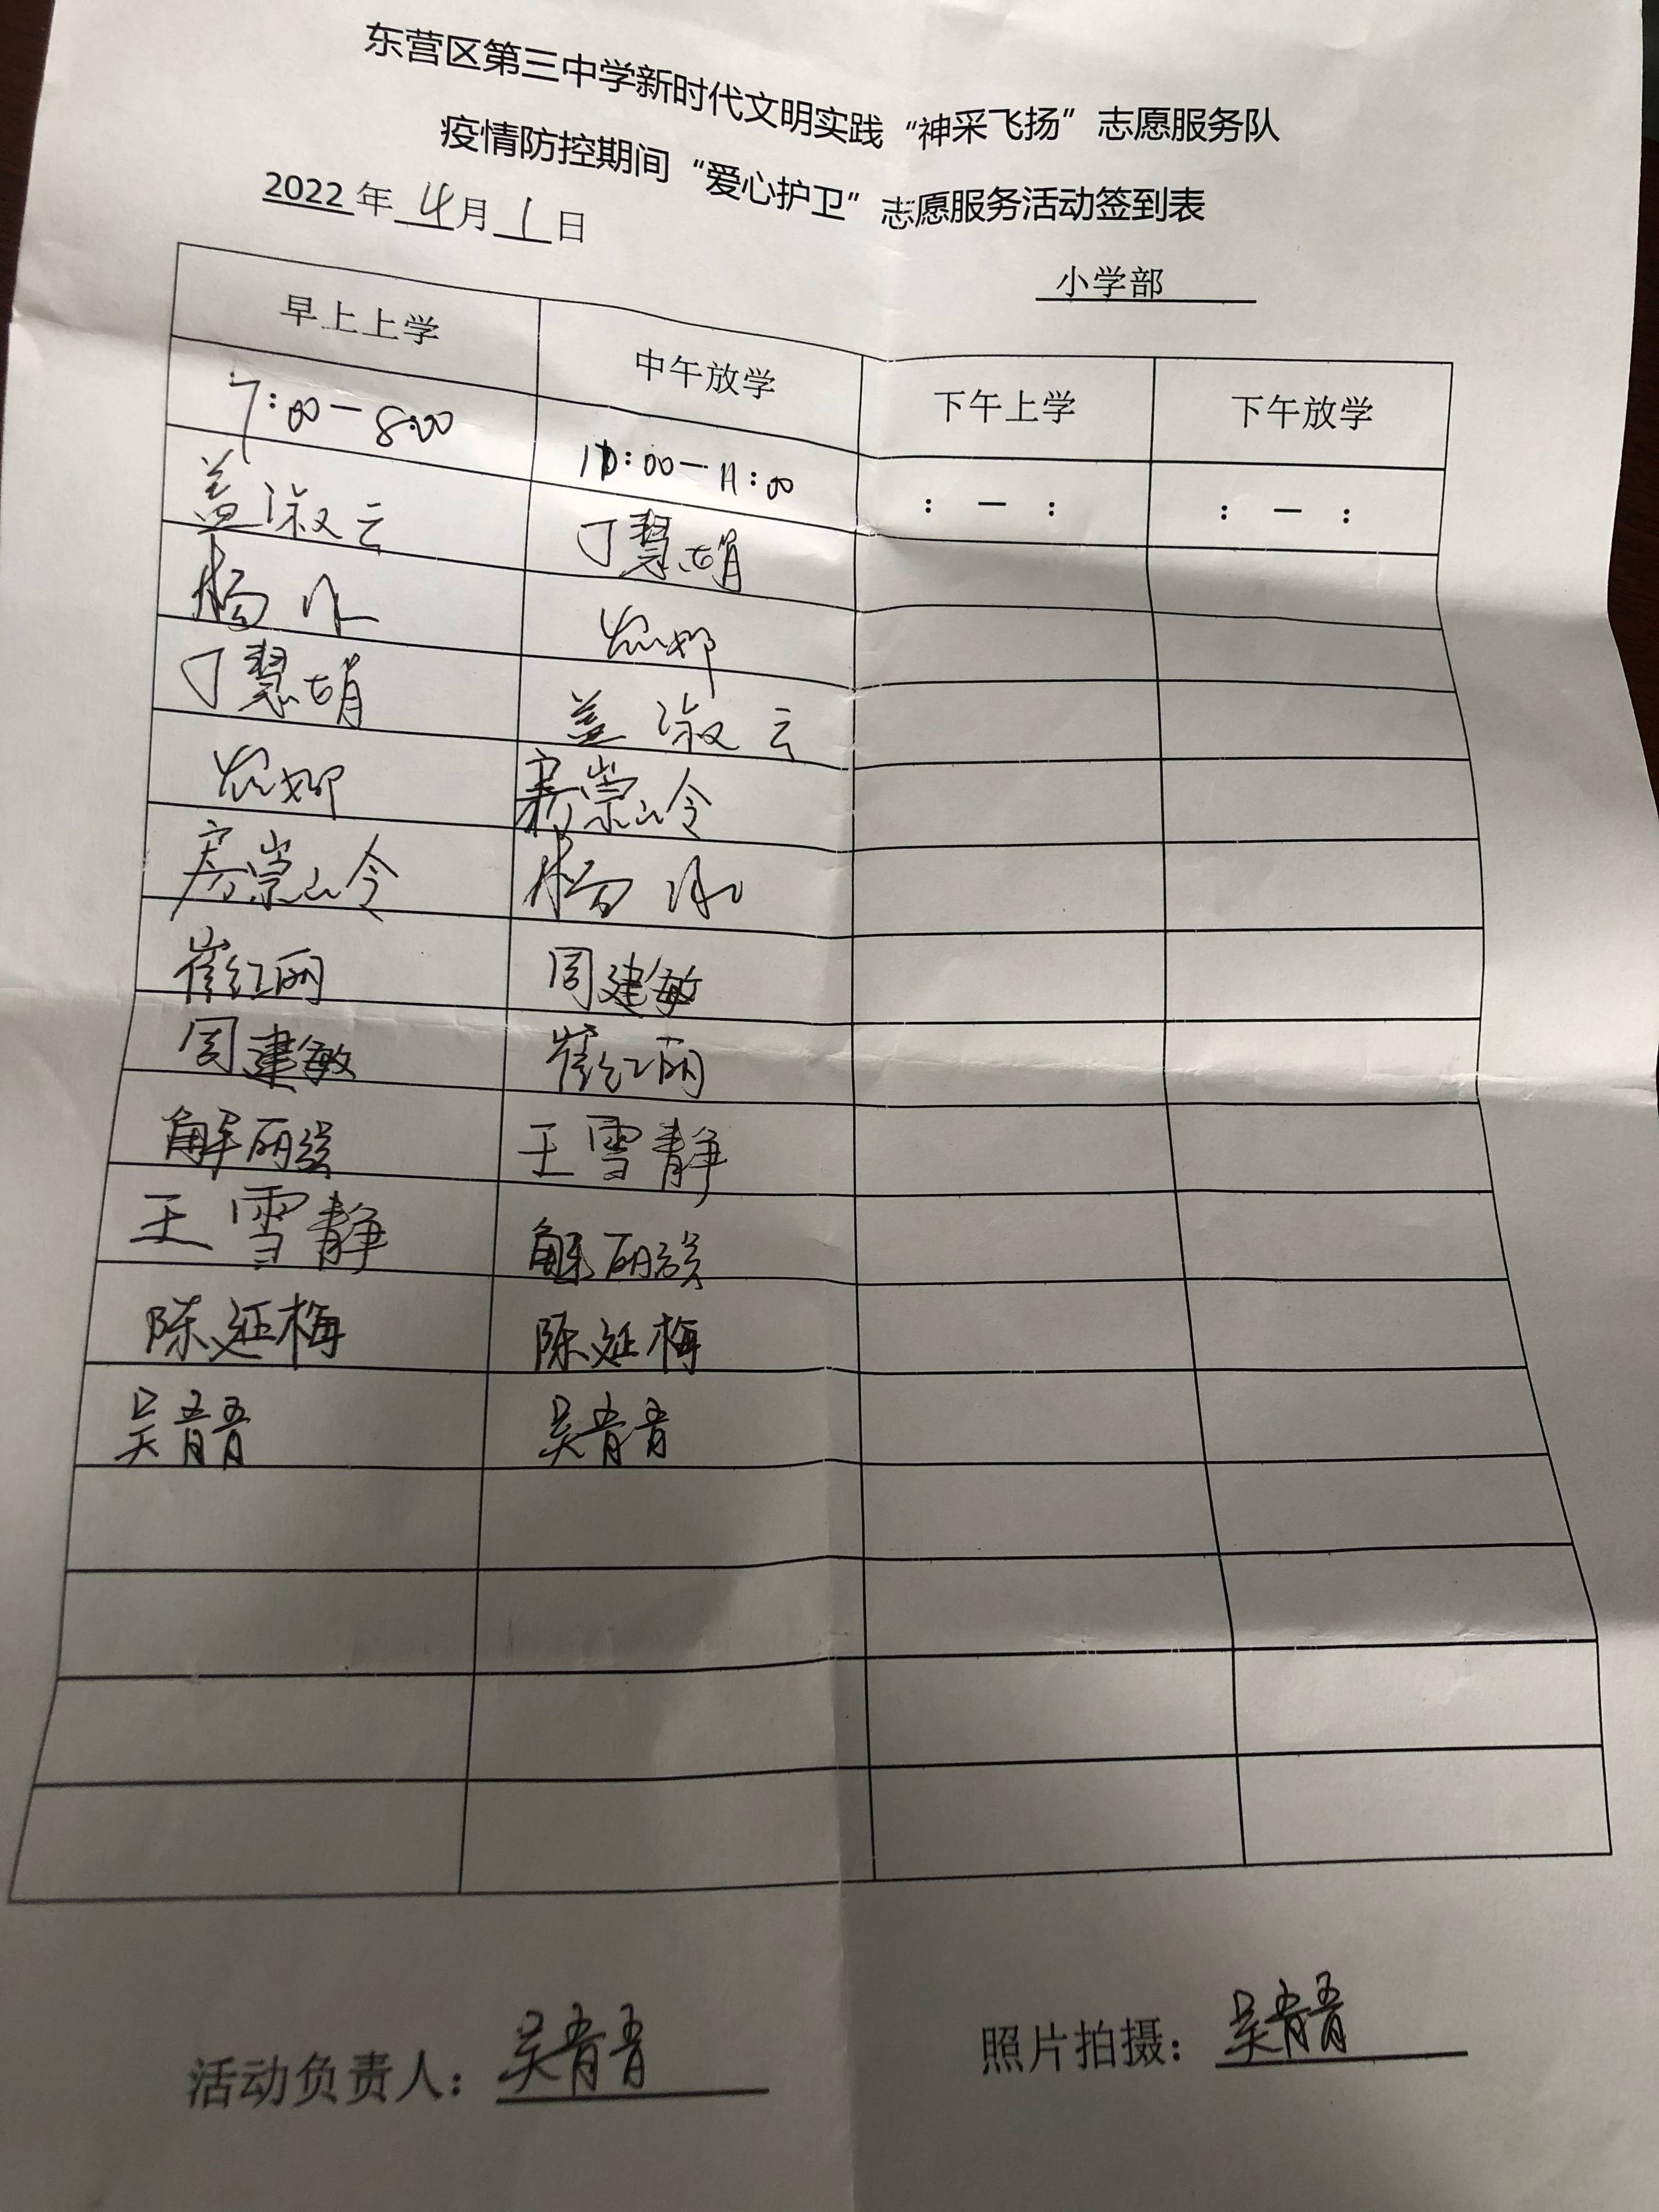 东营区第三中学新时代文明实践“神采飞扬”志愿服务队
疫情防控期间“爱心护卫”志愿服务活动签到表
2022年 4月 1日
小学部
早上上学 中午放学 下午上学 下午放学
7:00—8:00 10:00—11:00 : — : : — :
盖淑云 丁慧娟
杨
丁慧娟 盖淑云
房崇岭
房崇岭 杨
崔红丽 周建敏
周建敏 崔红丽
解丽 王雪静
王雪静 解丽
陈延梅 陈延梅
吴青青 吴青青
活动负责人：吴青青 照片拍摄：吴青青